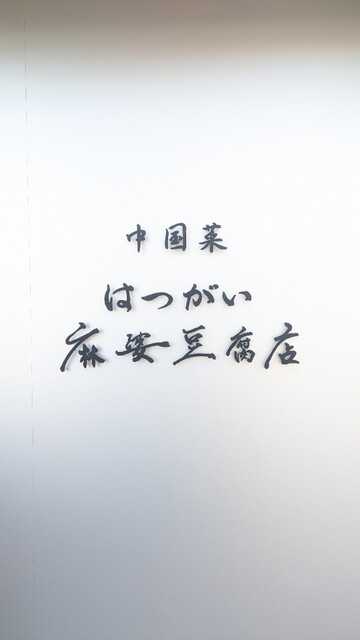 中国菜
はつがい
麻婆豆腐店